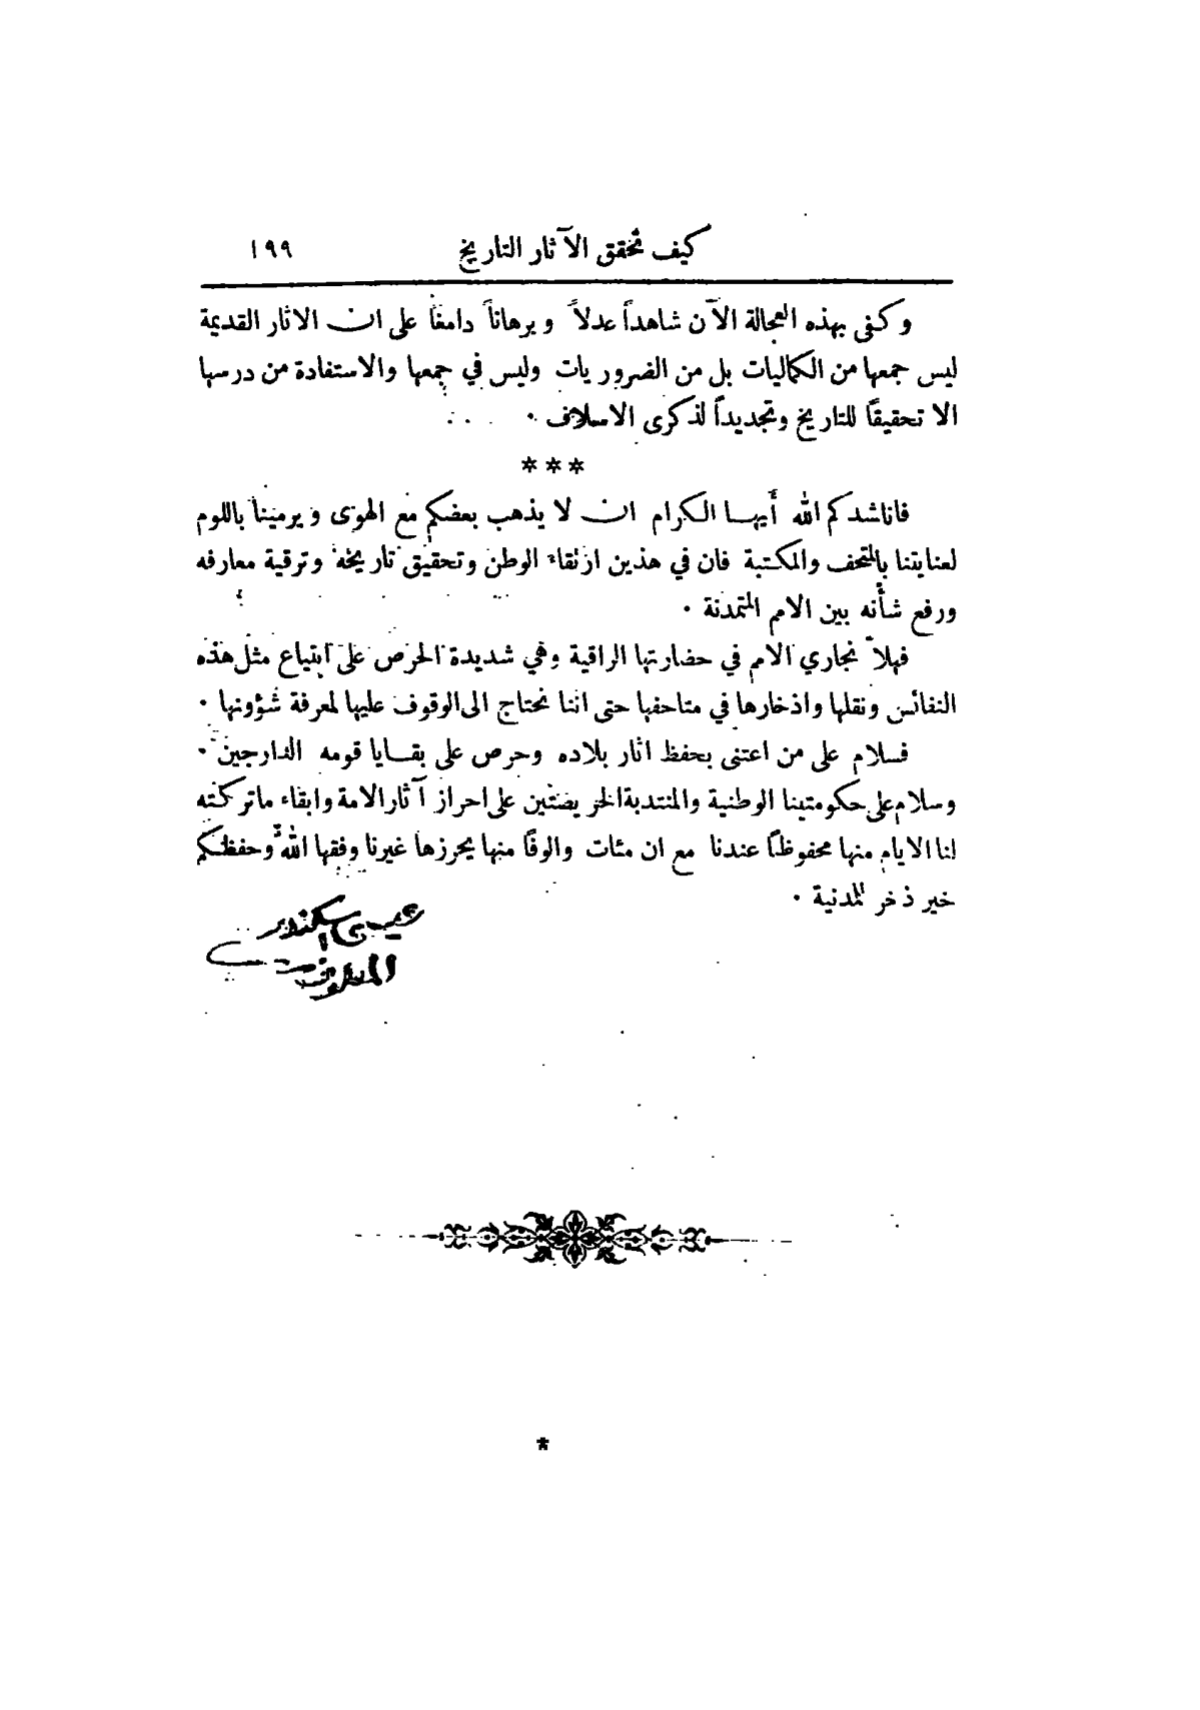 كيف تحقق الآثار التاريخ ١٩٩
وكفى بهذه العجالة الآن شاهداً عدلاً وبرهاناً دامغاً على ان الاثار القديمة
ليس جمعها من الكماليات بل من الضروريات وليس في جمعها والاستفادة من درسها
الا تحقيقاً للتاريخ وتجديداً لذكرى الاسلاف ٠
***
فاناشدكم الله أيها الكرام ان لا يذهب بعضكم مع الهوى ويرمينا باللوم
لعنايتنا بالمتحف والمكتبة فان في هذين ارتقاء الوطن وتحقيق تاريخه وترقية معارفه
ورفع شأنه بين الامم المتمدنة ٠
فهلاّ نجاري الامم في حضارتها الراقية وهي شديدة الحرص على ابتياع مثل هذه
النفائس ونقلها واذخارها في متاحفها حتى اننا نحتاج الى الوقوف عليها لمعرفة شؤونها ٠
فسلام على من اعتنى بحفظ اثار بلاده وحرص على بقايا قومه الدارجين ٠
وسلام على حكومتينا الوطنية والمنتدبة الحريصتين على احراز آثار الامة وابقاء ما تركته
لنا الايام منها محفوظاً عندنا مع ان مئات والوفاً منها يحرزها غيرنا وفقها الله وحفظكم
خير ذخر للمدنية ٠
عيسى اسكندر
المعلوف
*